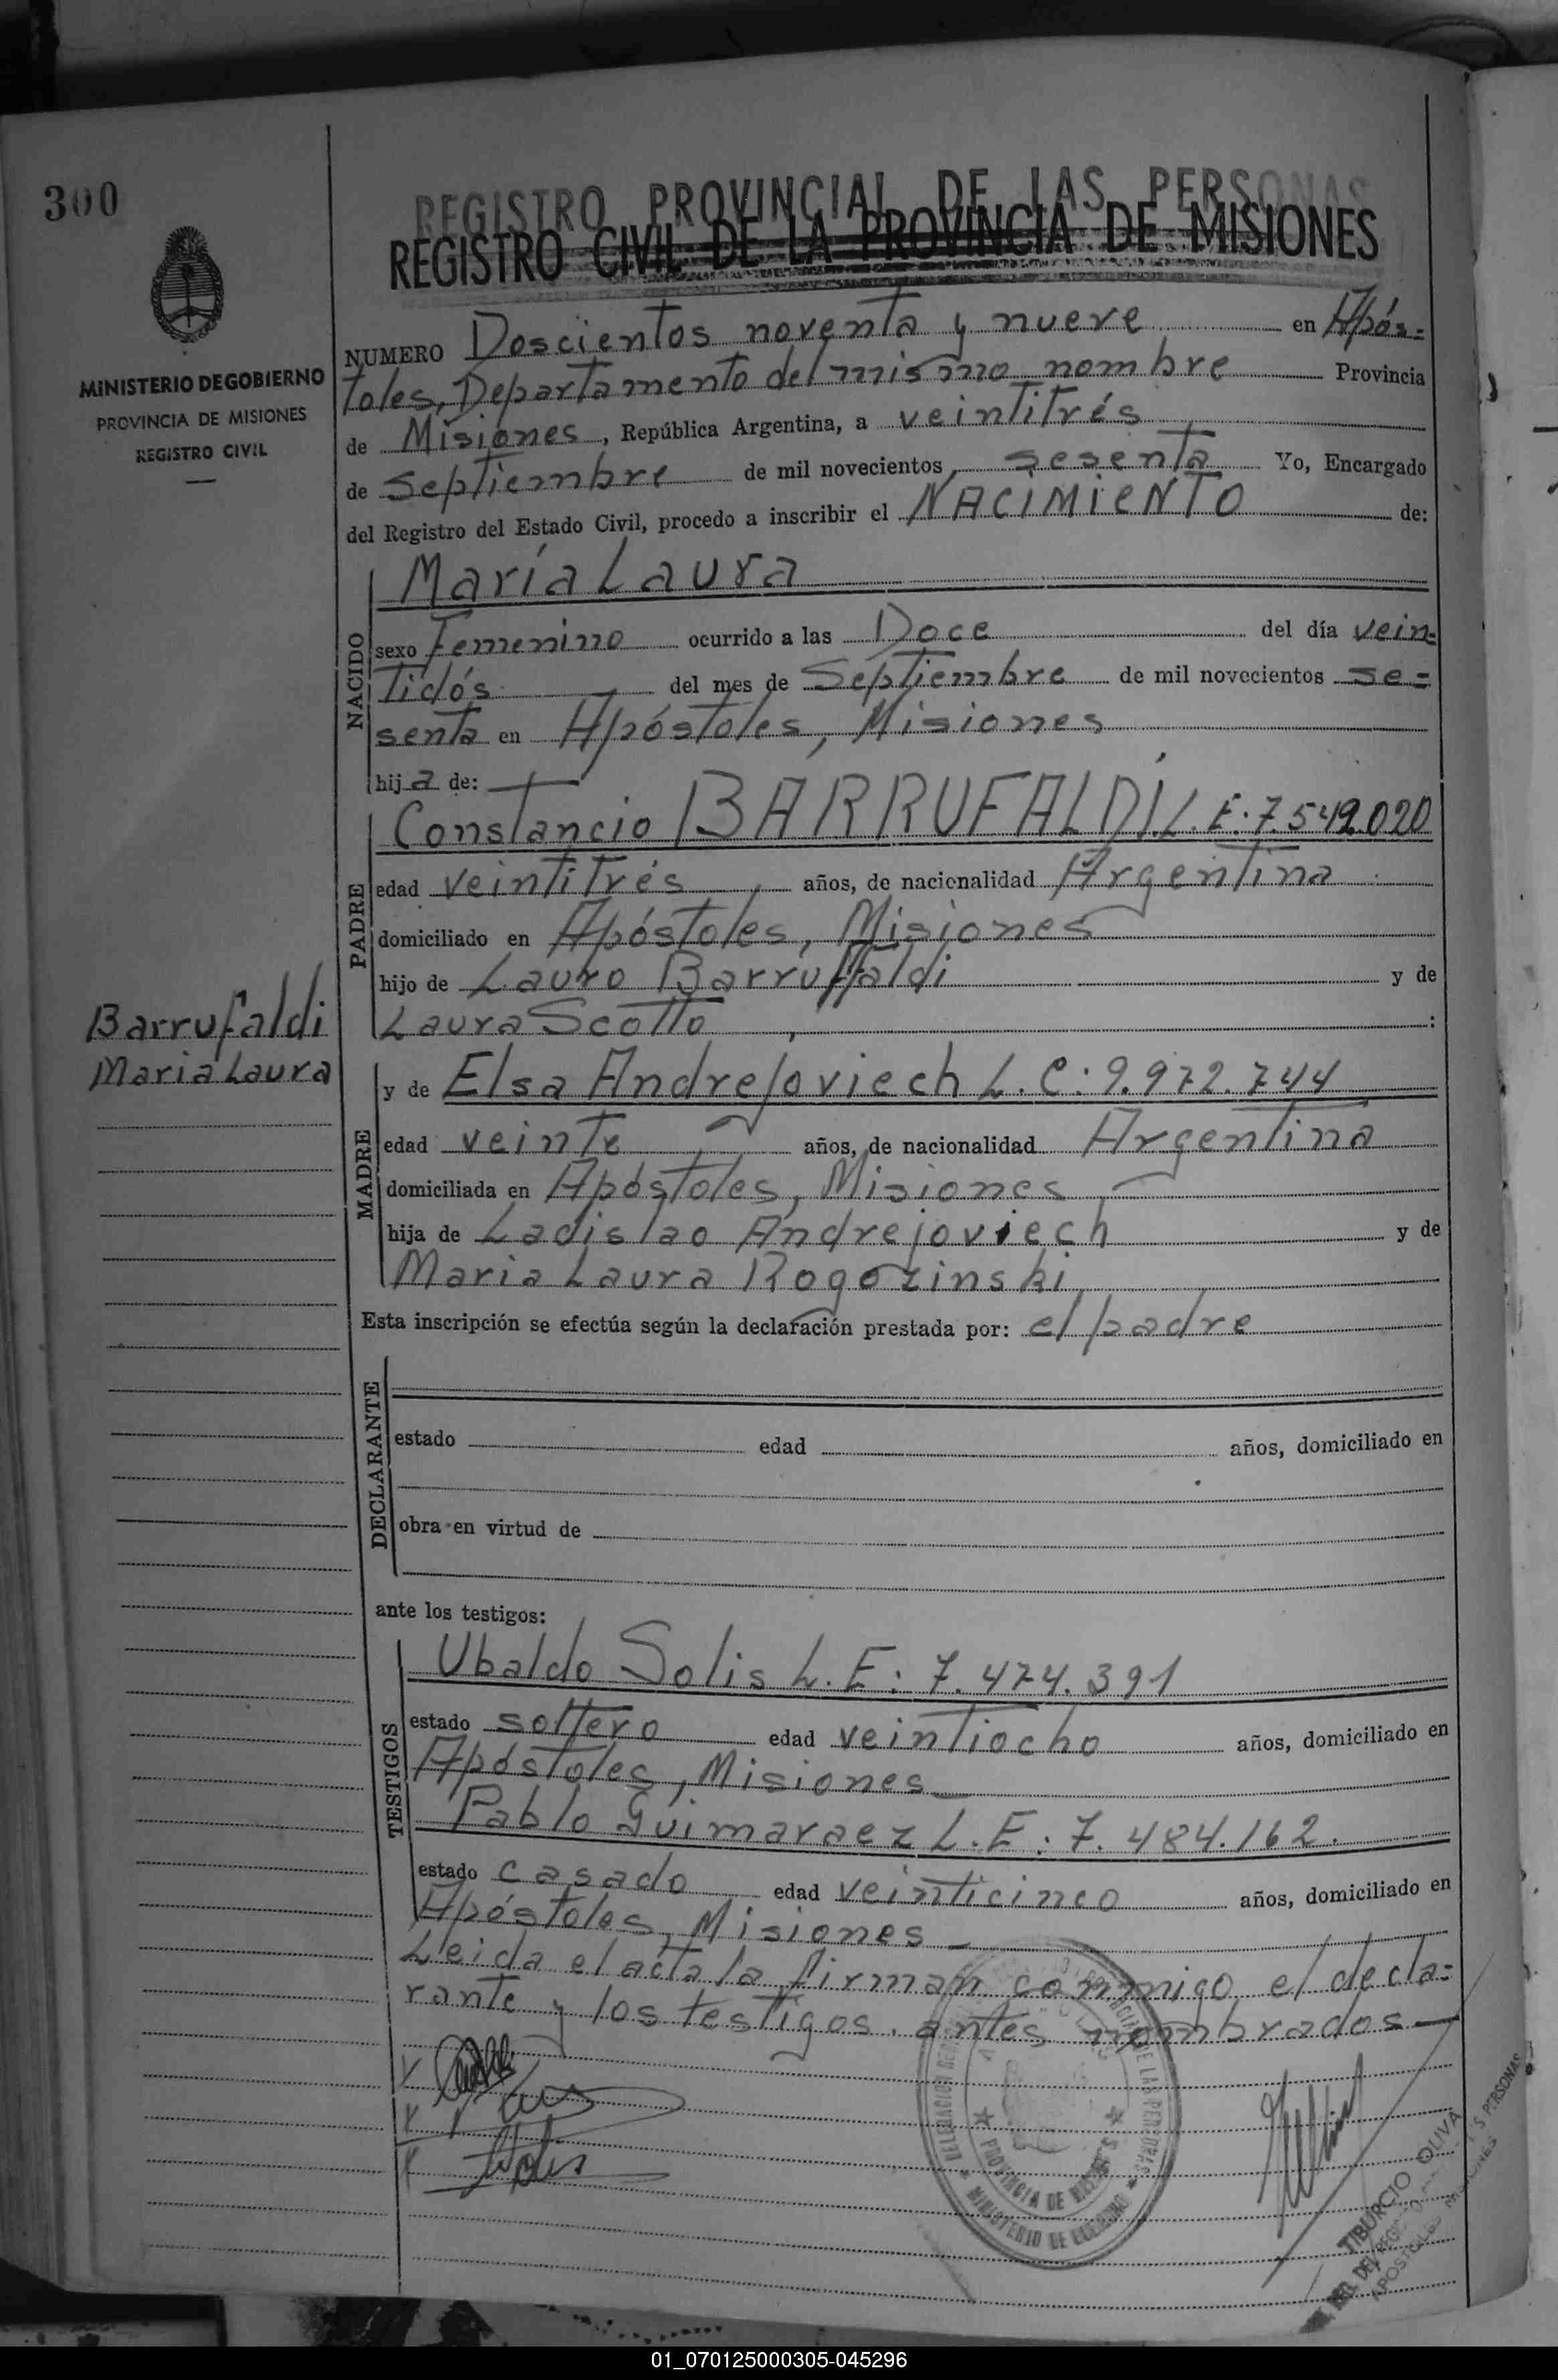 300
REGISTRO PROVINCIAL DE LAS PERSONAS
REGISTRO CIVIL DE LA PROVINCIA DE MISIONES
MINISTERIO DE GOBIERNO
PROVINCIA DE MISIONES
REGISTRO CIVIL
NUMERO Doscientos noventa y nueve en Após=
toles, Departamento del mismo nombre Provincia
de Misiones, República Argentina, a veintitrés
de Septiembre de mil novecientos sesenta Yo, Encargado
del Registro del Estado Civil, procedo a inscribir el NACIMIENTO de:
NACIDO
María Laura
sexo Femenino ocurrido a las Doce del día vein=
tidós del mes de Septiembre de mil novecientos se=
senta en Apóstoles, Misiones
hija de:
PADRE
Constancio BARRUFALDI L.E: 7.549.020
edad veintitrés años, de nacionalidad Argentina
domiciliado en Apóstoles, Misiones
hijo de Lauro Barruffaldi y de
Laura Scotto :
Barrufaldi
Maria Laura
MADRE
y de Elsa Andrejoviech L.C: 9.972.744
edad veinte años, de nacionalidad Argentina
domiciliada en Apóstoles, Misiones
hija de Ladislao Andrejoviech y de
Maria Laura Rogozinski
Esta inscripción se efectúa según la declaración prestada por: el padre
DECLARANTE
estado edad años, domiciliado en
obra en virtud de
ante los testigos:
TESTIGOS
Ubaldo Solis L.E: 7.474.391
estado soltero edad veintiocho años, domiciliado en
Apóstoles, Misiones
Pablo Guimaraez L.E: 7.484.162.
estado casado edad veinticinco años, domiciliado en
Apóstoles, Misiones
Leida el acta la firman conmigo el decla=
rante y los testigos antes nombrados
PROVINCIA DE MISIONES
MINISTERIO DE GOBIERNO
TIBURCIO OLIVA
01_070125000305-045296